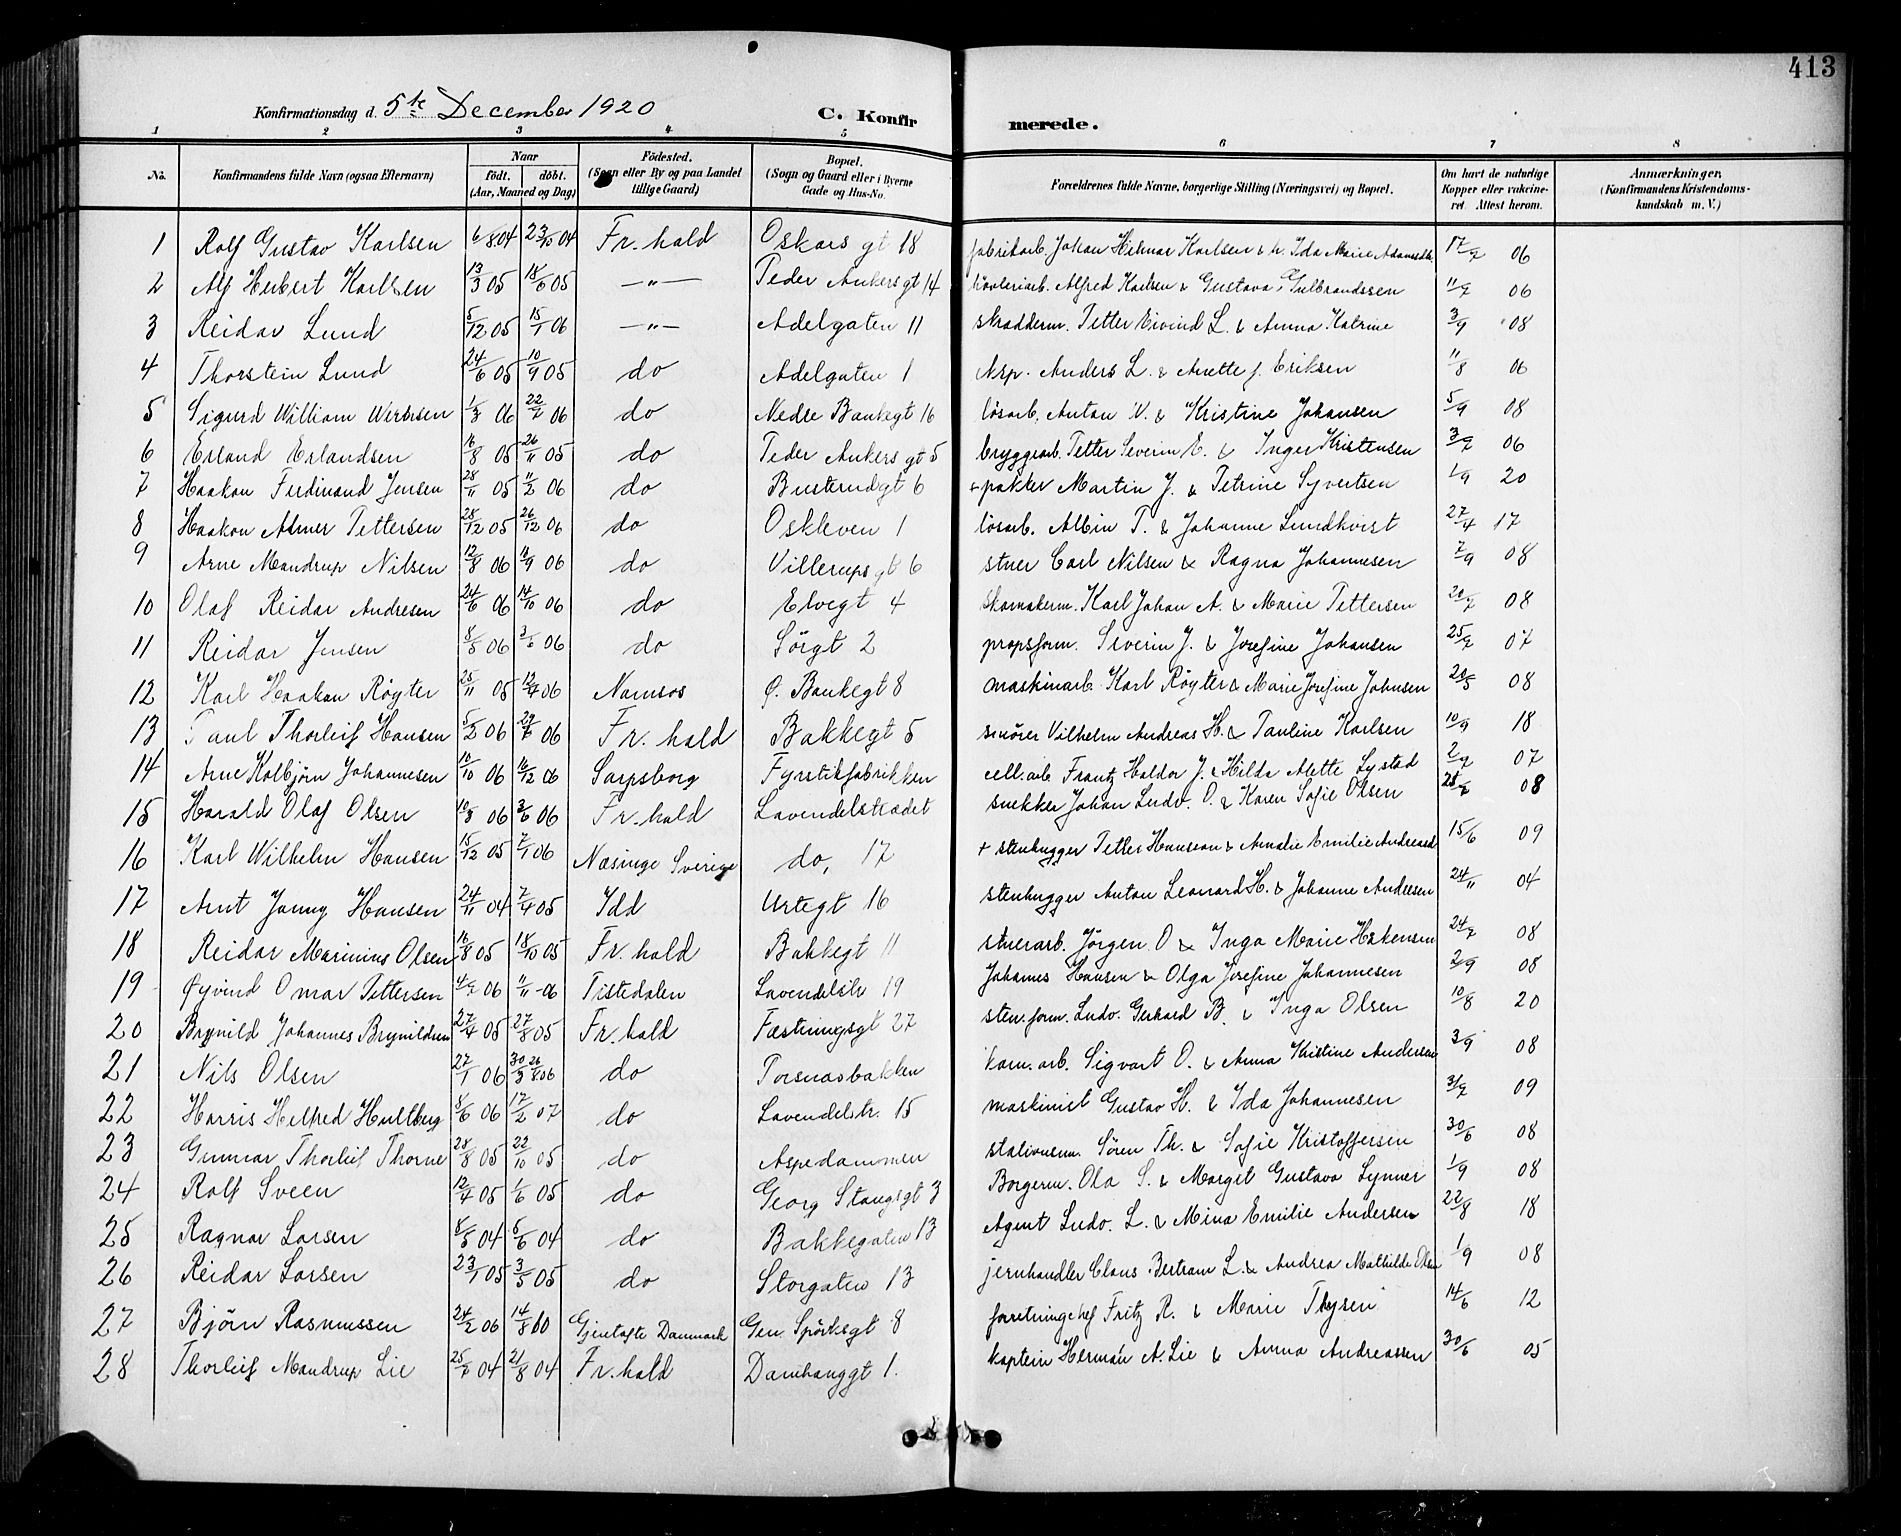 413
Konfirmationsdag d. 5te December 1920
C. Konfirmerede.
1 2 3 4 5 6 7 8
No. | Konfirmandens fulde Navn (ogsaa Efternavn) | Naar født. døbt. (Aar, Maaned og Dag) | Födested. (Sogn eller By og paa Landet tillige Gaard) | Bopæl. (Sogn og Gaard eller i Byerne Gade og Hus-No. | Forældrenes fulde Navne, borgerlige Stilling (Næringsvei) og Bopæl. | Om havt de naturlige Kopper eller vakcineret. Attest herom. | Anmærkninger, (Konfirmandens Kristendomskundskab m. V.)
1 Rolf Gustav Karlsen 6/8 04 23/10 04 Fr.hald Oskars gt 18 fabrikarb. Johan Hilmar Karlsen & h. Ida Marie Adamsdtr. 17/7 06
2 Alf Herbert Karlsen 13/3 05 18/6 05 —"— Peder Ankersgt 14 høvleriarb. Alfred Karlsen & Gustava Gulbrandssen 11/7 06
3 Reidar Lund 5/12 05 15/1 06 —"— Adelgaten 11 skradderm. Petter Eivind L. & Anna Katrine 3/9 08
4 Thorstein Lund 24/6 05 10/9 05 do Adelgaten 1 Anders L. & Anette f. Eriksen 11/8 06
5 Sigurd William 1/3 06 22/7 06 do Nedre Bankegt 16 løsarb. Anton W. & Kristine Johansen 5/9 08
6 Erland Erlandsen 16/8 05 26/11 05 do Peder Ankers gt 5 bryggearb. Petter Severin E. & Inger Kristensen 3/7 06
7 Haakon Ferdinand Jensen 28/11 05 11/2 06 do Busterudgt 6 + pakker Martin J. & Petrine Syvertsen 1/9 20
8 Haakon Almer Pettersen 28/12 05 26/12 06 do Oskleven 1 løsarb. Albin P. & Johanne Lundkvist 27/4 17
9 Arne Mandrup Nilsen 12/8 06 16/9 06 do Villerups gt 6 stuer Carl Nilsen & Ragna Johannesen 7/9 08
10 Olaf Reidar Andresen 24/6 06 14/10 06 do Elvegt 4 skomakerm. Karl Johan A. & Marie Pettersen 20/7 08
11 Reidar Jensen 8/5 06 3/6 06 do Sörgt 2 propsform. Severin J. & Josefine Johansen 25/7 07
12 Karl Haakon Røyter 25/11 05 12/4 06 Namsos Ø. Bankegt 8 maskinarb. Karl Røyter & Marie Josefine Johnsen 20/5 08
13 Paul Thorleif Hansen 5/2 06 29/7 06 Fr.hald Bakkegt 5 smører Vilhelm Andreas H. & Pauline Karlsen 10/9 18
14 Arne Kolbjørn Johannesen 10/10 06 16/12 06 Sarpsborg Fyrstikfabrikken cell.arb Frantz Haldor J. & Hilda Alette Lystad 2/7 07
15 Harald Olaf Olsen 10/3 06 3/6 06 Fr.hald Lavendelstrædet snekker Johan Ludv. O. & Karen Sofie Olsen 28/7 08
16 Karl Wilhelm Hansen 15/12 05 7/1 06 Næsinge Sverige do, 17 + stenhugger Petter Hanseon & Amalie Emilie Andreasd 15/6 09
17 Arnt Jonny Hansen 24/11 04 7/4 05 Idd Urtegt 16 stenhugger Anton Leonard H. & Johanne Andresen 24/11 04
18 Reidar Marinius Olsen 16/8 05 18/10 05 Fr.hald Bakkegt 11 stuerarb. Jörgen O & Inga Marie Håkensen 24/7 08
19 Øyvind Omar Pettersen 4/7 06 11/11 06 Tistedalen Lavendelstr 19 Johannes Hansen & Olga Josefine Johannesen 2/9 08
20 Brynild Johannes Brynildsen 27/4 05 27/8 05 Fr.hald Fæstningsgt 27 sten.form. Ludv. Gerhard B. & Inga Olsen 10/8 20
21 Nils Olsen 27/1 06 30/3 26/8 06 do Torsnæsbakken kom. arb. Sigvart O. & Anna Kristine Andersen 3/9 08
22 Harris Helfred Hultberg 8/6 06 17/2 07 do Lavendelstr. 15 maskinist Gustav H. & Ida Johannesen 31/7 09
23 Gunnar Thorleif Thorne 28/8 05 22/10 05 do Aspedammen stationsm. Sören Th. & Sofie Kristoffersen 30/6 08
24 Rolf Sveen 12/4 05 1/6 05 do Georg Stangsgt 3 Borgerm. Ola S. & Margit Gustava Lynner 1/9 08
25 Ragnar Larsen 8/5 04 5/6 04 do Bakkegaten 13 Agent Ludv. L. & Mina Emilie Andersen 22/8 18
26 Reidar Larsen 23/1 05 3/5 05 do Storgaten 13 jernhandler Claus Bertram L. & Andrea Mathilde Olsen 1/9 08
27 Bjørn Rasmussen 24/2 06 14/8 00 Gjentofte Danmark Gen. Spörksgt 8 forretningschef Fritz R. & Marie Thysen 14/6 12
28 Thorleif Mandrup Lie 25/7 04 21/8 04 Fr.hald Danehauggt 1. kaptein Herman A. Lie & Anna Andreassen 30/6 05